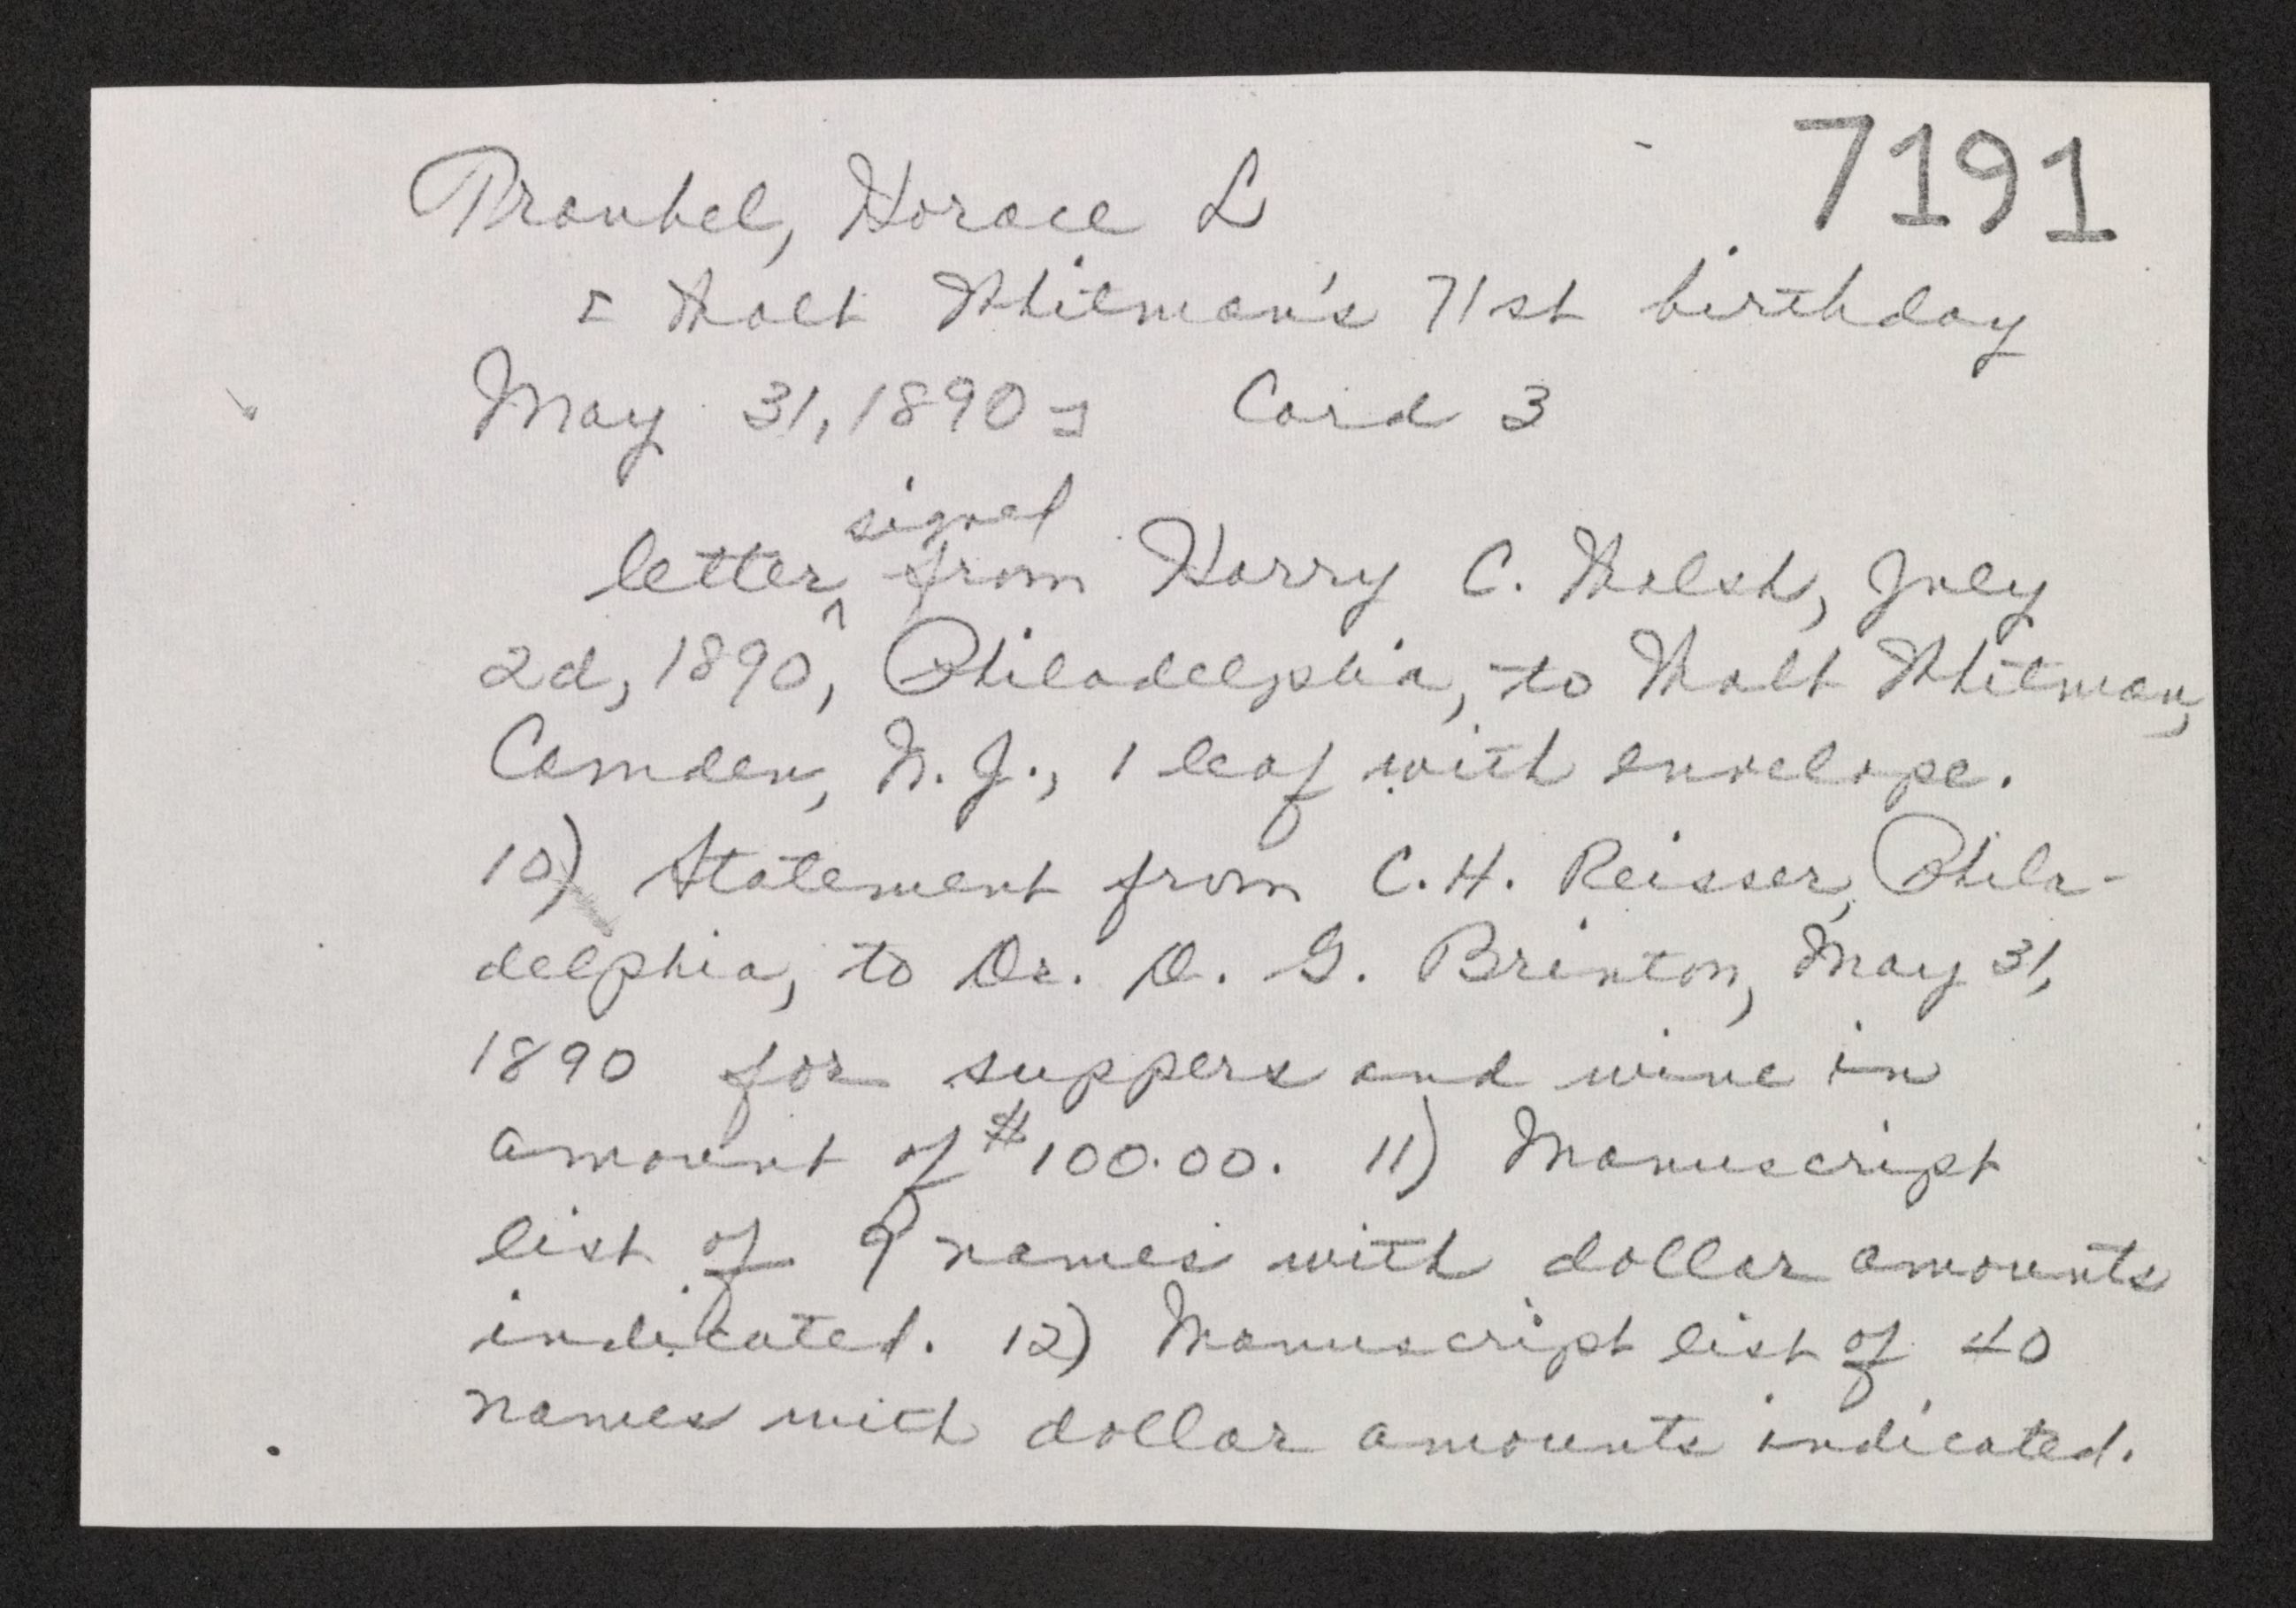 7191
Traubel, Horace L
[Walt Whitman's 71st birthday
May 31, 1890] Card 3
signed
letter ^ from Harry C. Walsh, July
2d, 1890, Philadelphia, to Walt Whitman,
Camden, N. J., 1 leaf with envelope.
10) Statement from C. H. Reisser, Phila-
delphia, to Dr. D. G. Brinton, May 31,
1890 for suppers and wine in
amount of $100.00. 11) Manuscript
list of 9 names with dollar amounts
indicated. 12) Manuscript list of 40
names with dollar amounts indicated.